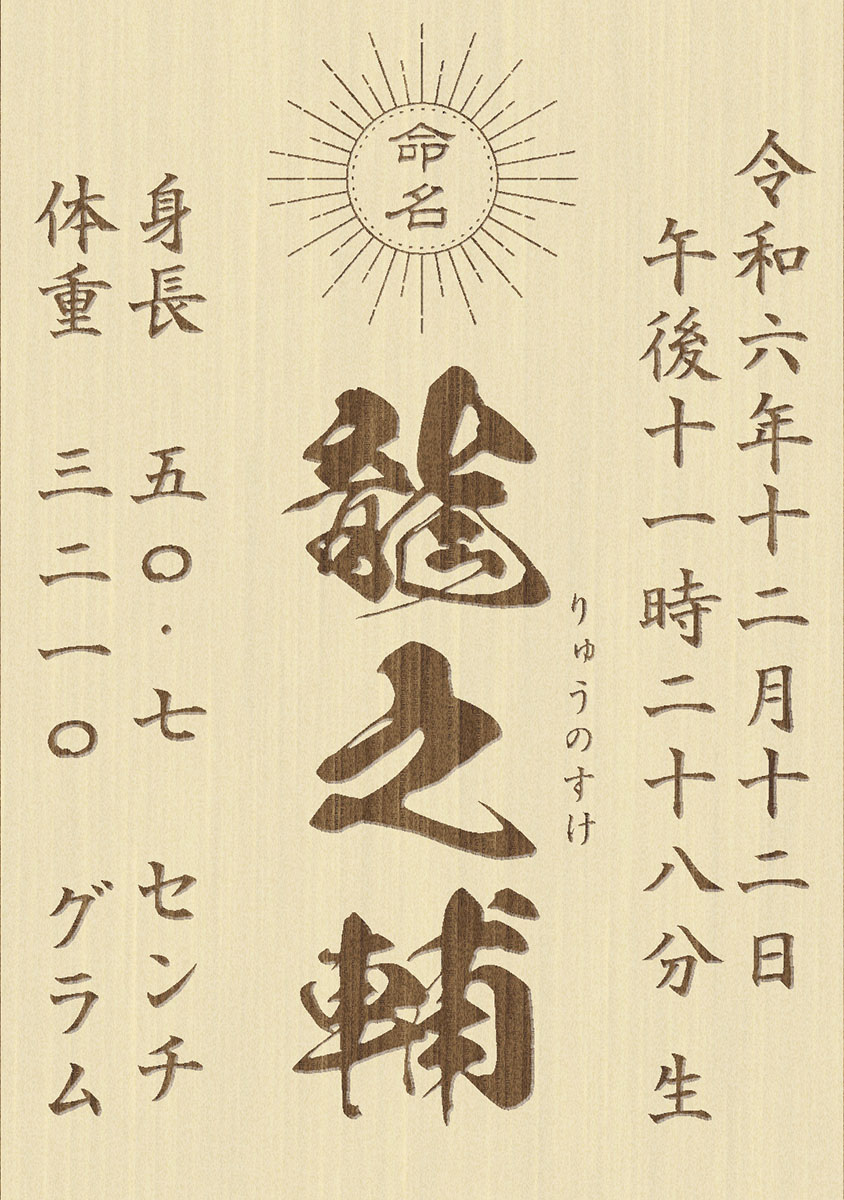 命名
令和六年十二月十二日
午後十一時二十八分 生
りゅうのすけ
龍之輔
身長 五〇・七 センチ
体重 三二一〇 グラム